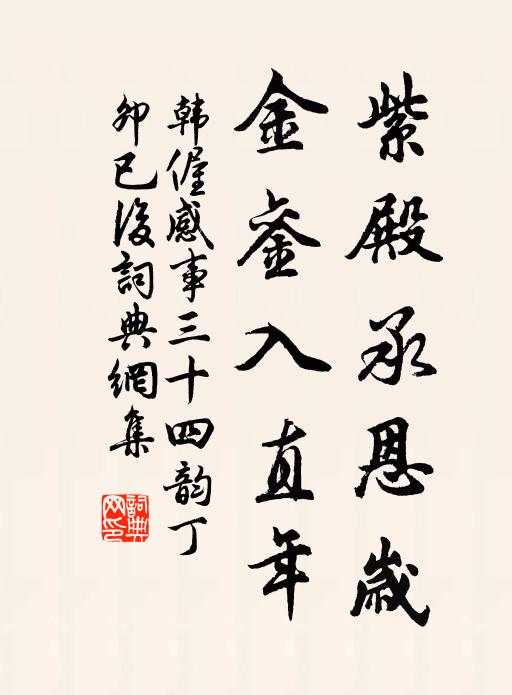 紫殿承恩歲
金銮入直年
韩偓感事三十四韵丁
卯已後詞典網集
詞典网印